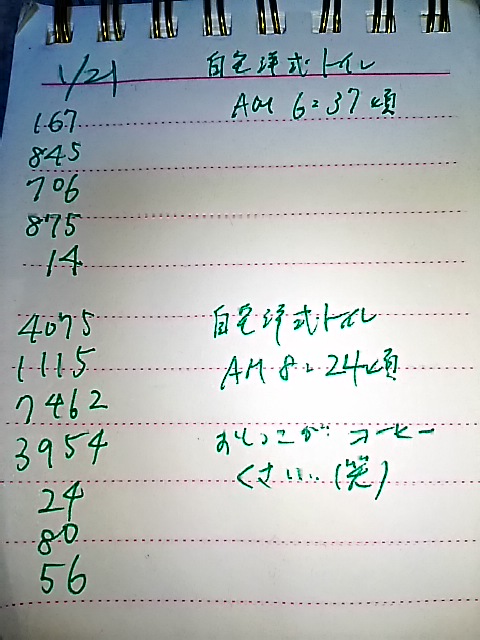 1/21 自宅洋式トイレ
AM 6:37頃
167
845
706
875
14
4075 自宅洋式トイレ
1115 AM 8:24頃
7462
3954 おしっこが コーヒー
くさい…(笑)
24
80
56